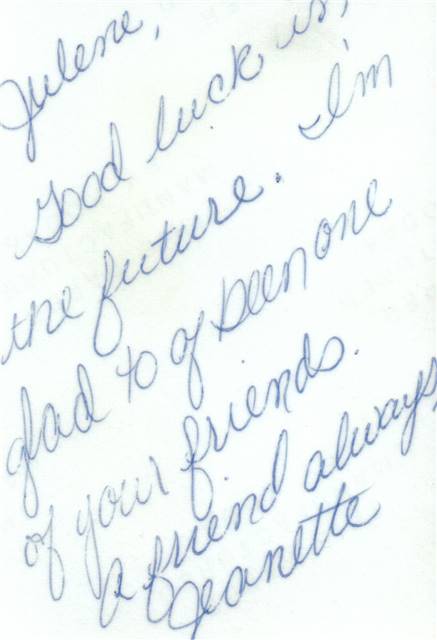 Julene,
Good luck in
the future. I'm
glad to of been one
of your friends.
A friend always,
Jeanette